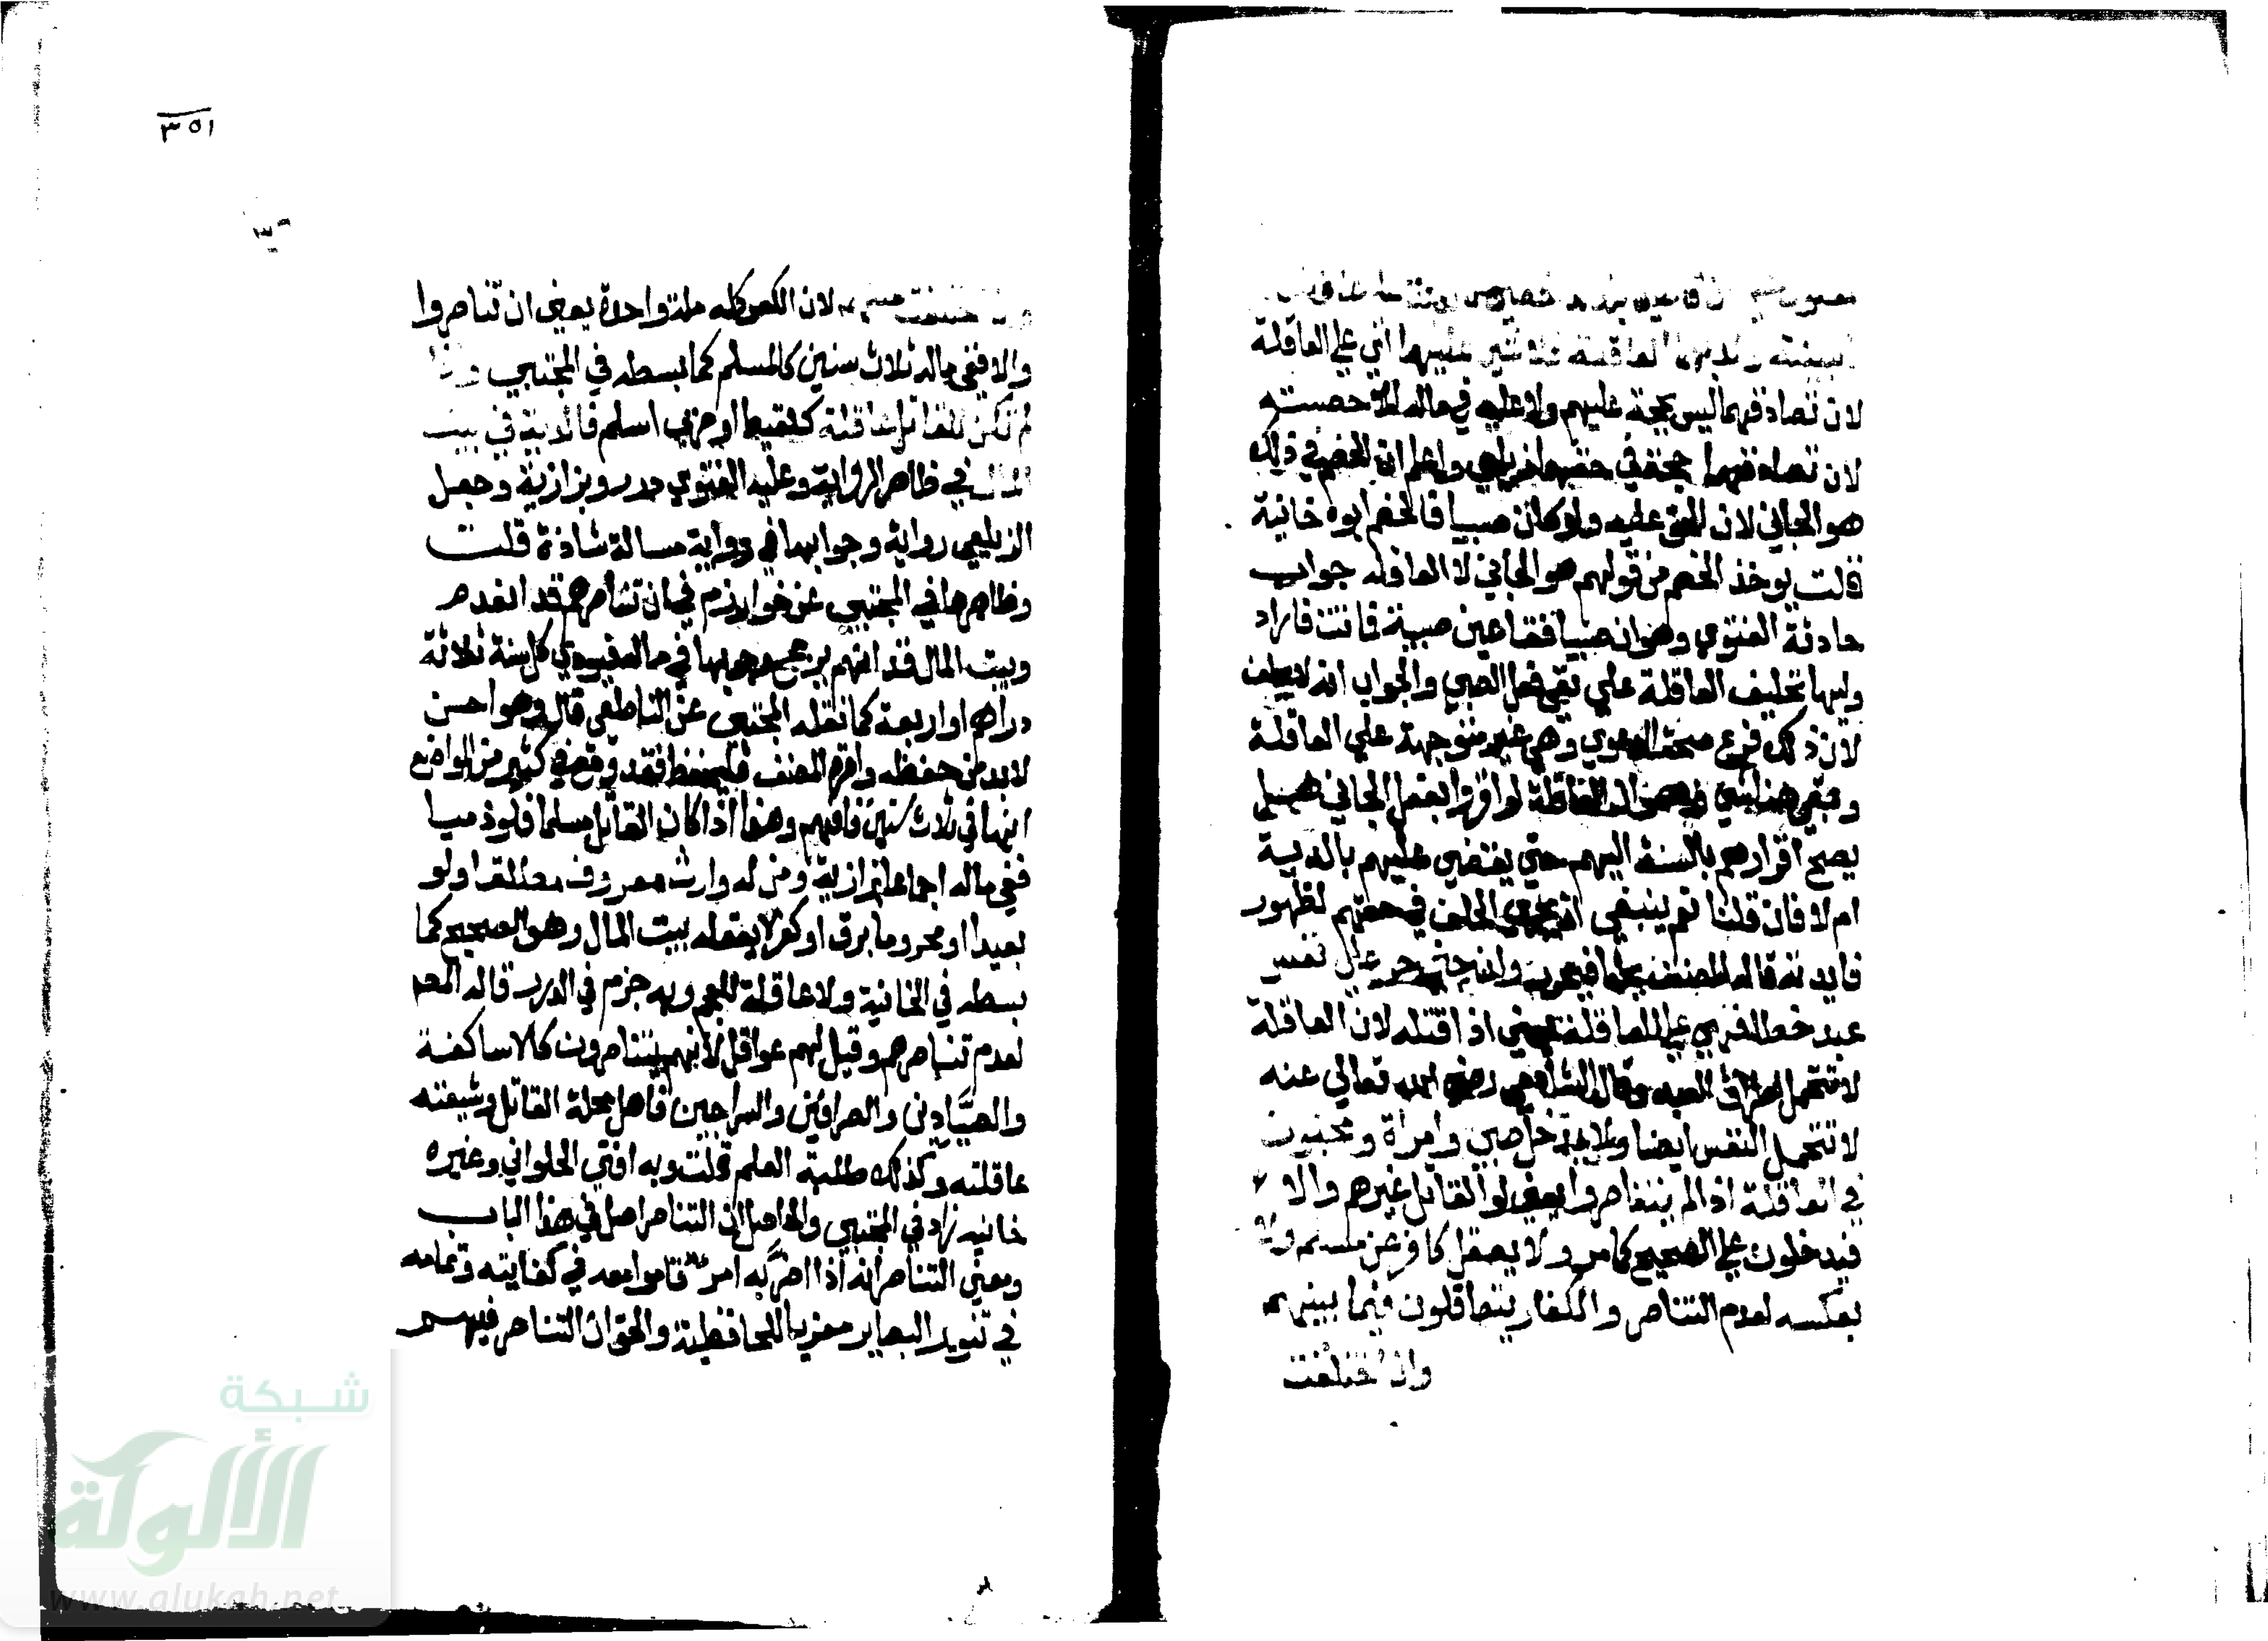 لان تصادقهما ليس بحجة عليهم ولا عليه في ماله الا حصته
لان تصادقهما حجة في حقهما زيلعي واعلم ان الخصم في ذلك
هو الجاني لان الحق عليه ولو كان صبيا فالخصم ابوه خانية
قلت يوخذ الخصم من قولهم هو الجاني لا العاقلة جواب
حادثة الفتوي وهو ان صبيا فقا عين صبية فماتت فاراد
وليها تحليف العاقلة علي نفي فعل الصبي والجواب انه لا يحلف
لان ذلك فرع صحة الدعوي وهي غير متوجهة علي العاقلة
وبقي هنا شي وهو ان العاقلة لو اقروا بفعل الجاني هل
يصح اقرارهم بالنسبة اليهم حتي يقضي عليهم بالدية
ام لا فان قلنا نعم ينبغي ان يجري الحلف في حقهم لظهور
فايدته قاله المصنف بحثا فيحرر وان جني حر علي نفس
عبد خطا فهي علي العاقلة يعني اذا قتله لان العاقلة
لا تتحمل اطراف العبد وقال الشافعي رضي الله تعالي عنه
لا تتحمل النفس ايضا ولا يدخل صبي وامراة ومجنون
في العاقلة اذا لم يتناصروا يعني لو القاتل غيرهم والا
فيدخلون علي الصحيح كما مر ولا يعقل كافر عن مسلم ولا
بعكسه لعدم التناصر والكفار يتعاقلون فيما بينهم
وان اختلفت
٣٥١
وان اختلفت مللهم لان الكفر كله ملة واحدة يعني ان تناصروا
والا ففي ماله ثلاث سنين كالمسلم كما بسطه في المجتبي واذا
لم تكن للقاتل عاقلة كلقيط او حربي اسلم فالدية في بيت
المال في ظاهر الرواية وعليه الفتوي درر وبزازية وجعل
الزيلعي رواية وجوبها في ماله رواية شاذة قلت
وظاهر ما في المجتبي عن خوارزم في ان تناصرهم قد انعدم
وبيت المال قد انهدم يرجح وجوبها في ماله فيودي كل سنة ثلاثة
دراهم او اربعة كما نقله المجتبي عن الناطفي قال وهو احسن
لابد من حفظه واقره المصنف فليحفظ فقد وقع في كثير من المواضع
انها في ثلاث سنين فافهم وهذا اذا كان القاتل مسلما فلو ذميا
ففي ماله اجماعا بزازية ومن له وارث معروف مطلقا ولو
بعيدا او محروما برق او كفر لا يعقله بيت المال وهو الصحيح كما
بسطه في الخانية ولا عاقلة للعجم وبه جزم في الدرر قاله المص
لعدم تناصرهم وقيل لهم عواقل لانهم يتناصرون كالاساكفة
والصيادين والصرافين والسراجين فاهل محلة القاتل وشيعته
عاقلته وكذلك طلبة العلم قلت وبه افتي الحلواني وغيره
خانيه زاد في المجتبي والحاصل ان التناصر اصل في هذا الباب
ومعني التناصر انه اذا احزبه امر قاموا معه في كفايته وتمامه
في تنوير البصاير معزيا للحافظية والحق ان التناصر فيهم
شبكة
الألوكة
www.alukah.net